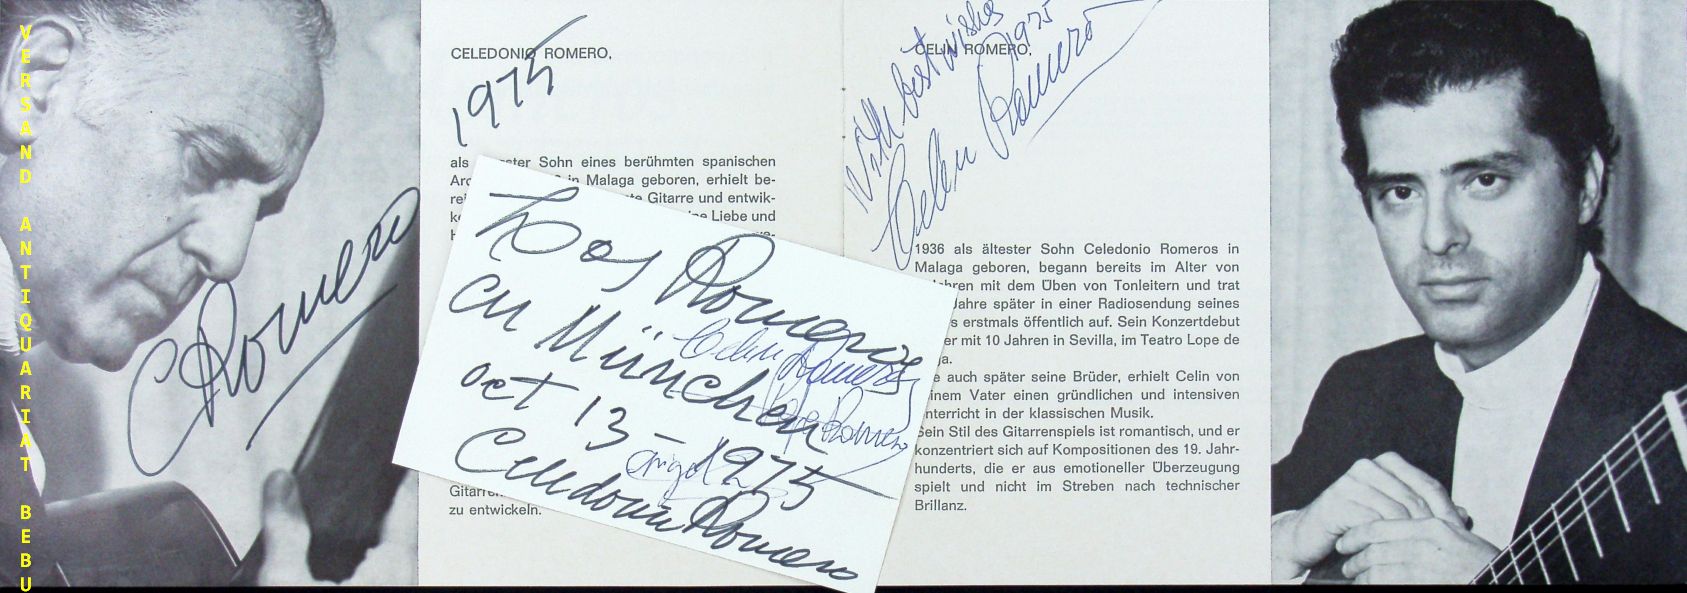 VERSAND ANTIQUARIAT BEBU
C Romero
CELEDONIO ROMERO,
1975
als Sohn eines berühmten spanischen
in Malaga geboren, erhielt be-
Gitarre und entwik-
Liebe und
zu entwickeln.
Los Romeros
en München
oct 13-1975
Celedonio Romero
Celin Romero
Pepe Romero
Angel R
With best wishes
1975
Celin Romero
CELIN ROMERO,
1936 als ältester Sohn Celedonio Romeros in
Malaga geboren, begann bereits im Alter von
mit dem Üben von Tonleitern und trat
Jahre später in einer Radiosendung seines
erstmals öffentlich auf. Sein Konzertdebut
er mit 10 Jahren in Sevilla, im Teatro Lope de
auch später seine Brüder, erhielt Celin von
Vater einen gründlichen und intensiven
Unterricht in der klassischen Musik.
Sein Stil des Gitarrenspiels ist romantisch, und er
konzentriert sich auf Kompositionen des 19. Jahr-
hunderts, die er aus emotioneller Überzeugung
spielt und nicht im Streben nach technischer
Brillanz.